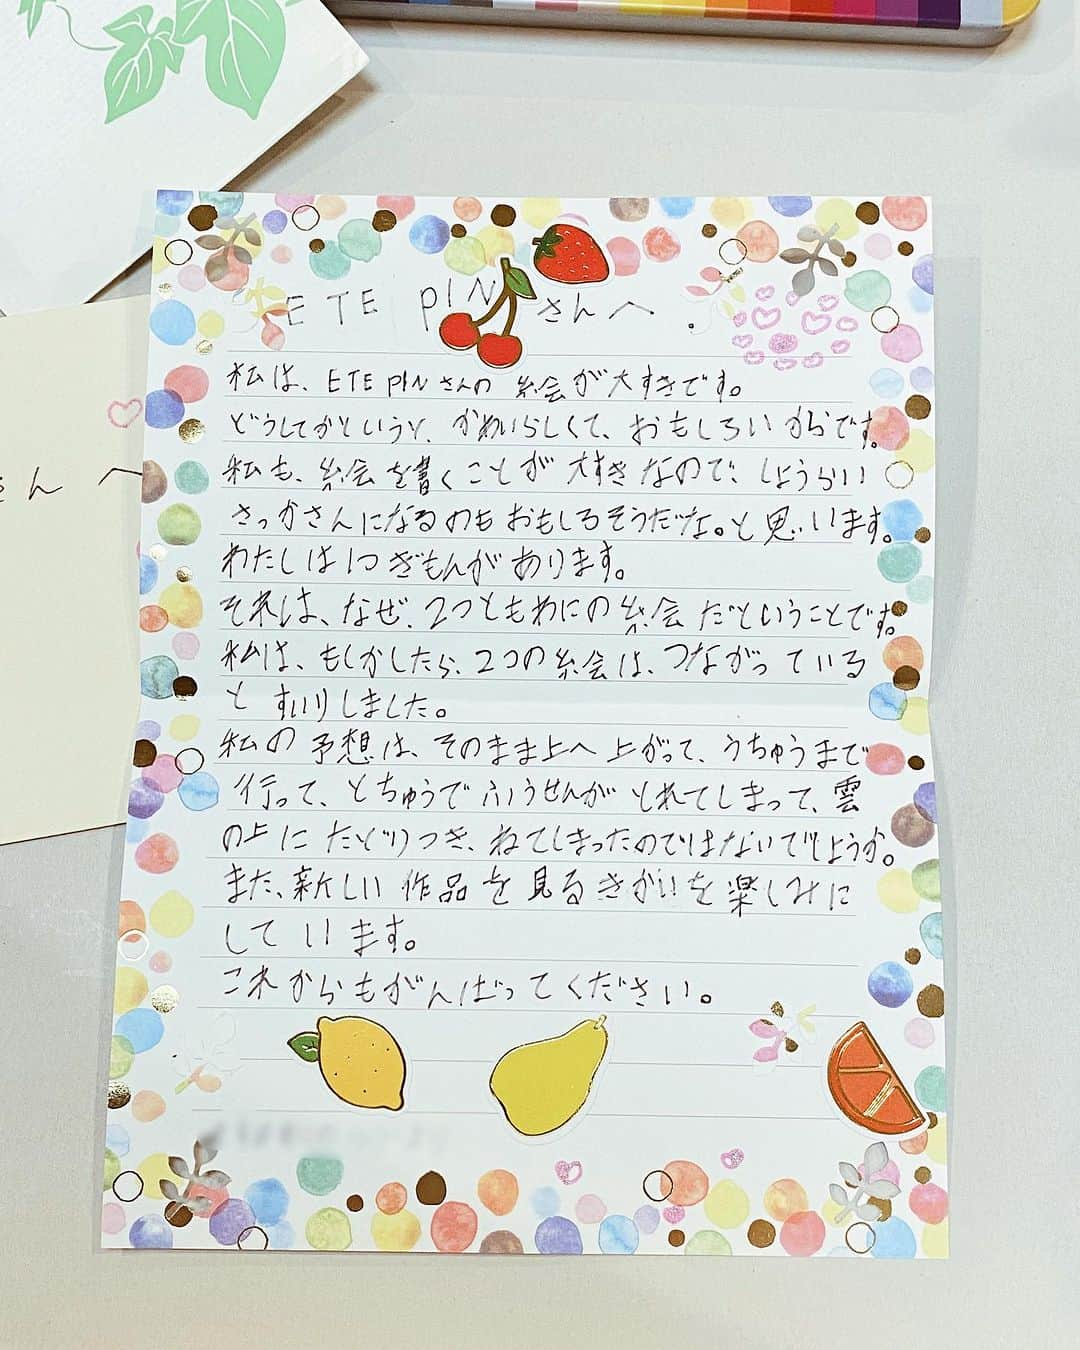 ETE PIN さんへ
私は、ETE PINさんの 絵が大すきです。
どうしてかというと、かわいらしくて、おもしろいからです。
私も、絵を書くことが大すきなので、しょうらい
さっかさんになるのもおもしろそうだな。と思います。
わたしは1つぎもんがあります。
それは、なぜ、2つともわにの絵だということです。
私は、もしかしたら、2つの絵は、つながっている
とすいりしました。
私の予想は、そのまま上へ上がって、うちゅうまで
行って、とちゅうでふうせんがとれてしまって、雲
の上にたどりつき、ねてしまったのではないでしょうか。
また、新しい作品を見るきかいを楽しみに
しています。
これからもがんばってください。
さんへ